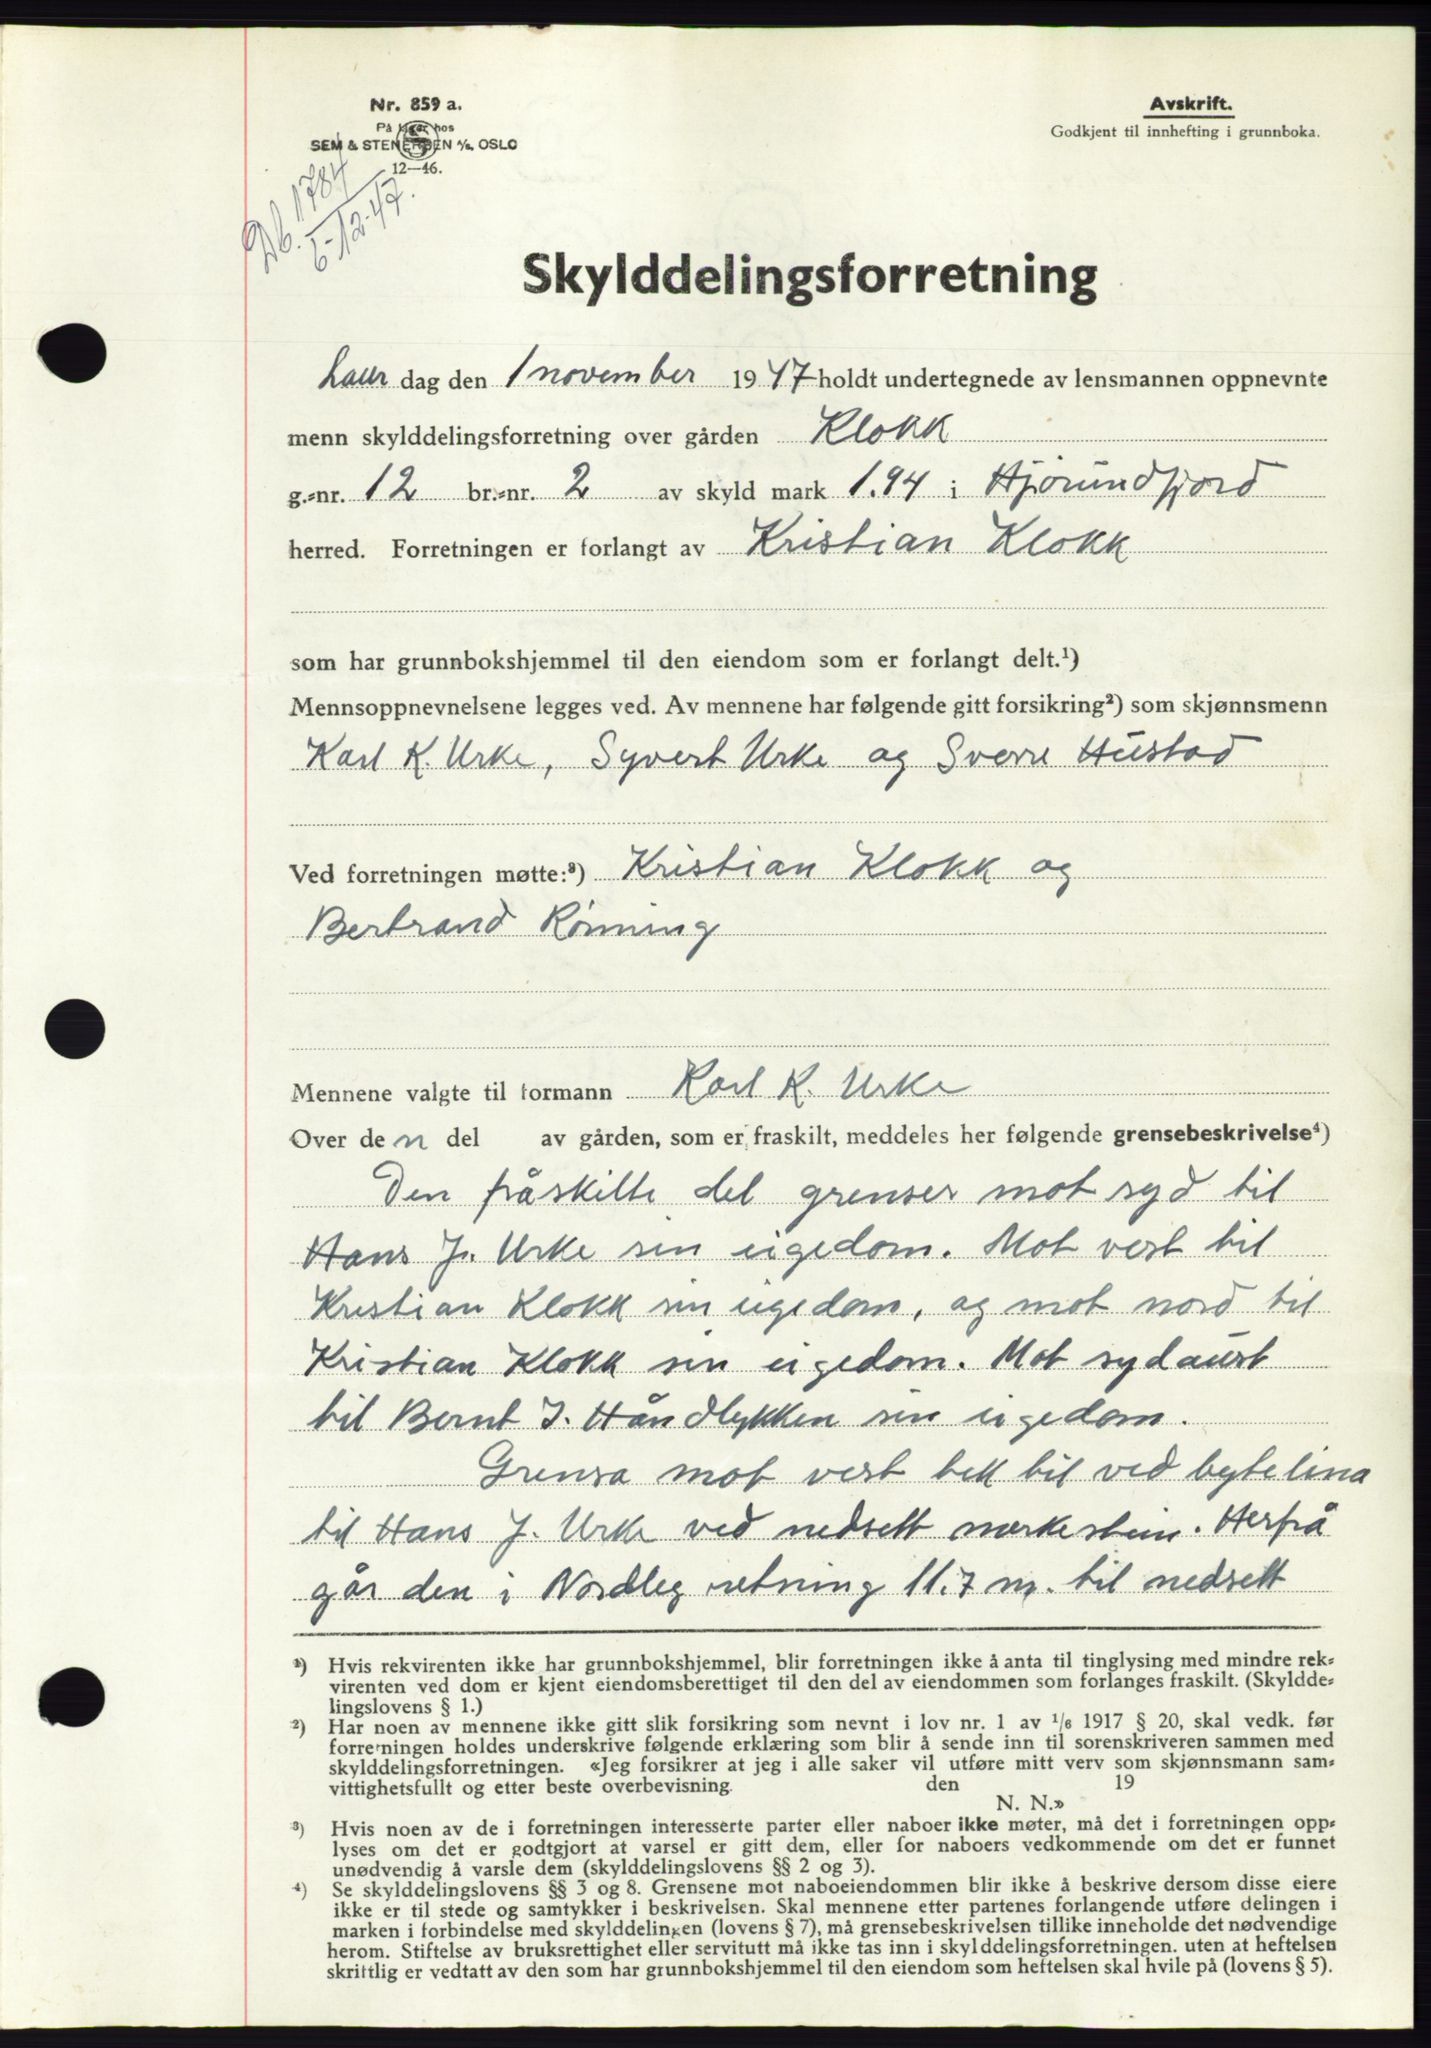 Nr. 859 a.
På lager hos
SEM & STENERSEN A/S, OSLO
12—46.
Avskrift.
Godkjent til innhefting i grunnboka.
Db. 1784
6-12-47.
Skylddelingsforretning
Laur dag den 1 november 1947 holdt undertegnede av lensmannen oppnevnte
menn skylddelingsforretning over gården Klokk
g.-nr. 12 br.-nr. 2 av skyld mark 1.94 i Hjørundfjord
herred. Forretningen er forlangt av Kristian Klokk
som har grunnbokshjemmel til den eiendom som er forlangt delt.¹)
Mennsoppnevnelsene legges ved. Av mennene har følgende gitt forsikring²) som skjønnsmenn
Karl K. Urke, Syvert Urke og Sverre Hustad
Ved forretningen møtte:³) Kristian Klokk og
Bertrand Rönning
Mennene valgte til formann Karl K. Urke
Over den del av gården, som er fraskilt, meddeles her følgende grensebeskrivelse⁴)
Den fråskilte del grenser mot syd til
Hans J. Urke sin eigedom. Mot vest til
Kristian Klokk sin eigedom, og mot nord til
Kristian Klokk sin eigedom. Mot sydaust
til Bernt J. Håndlykken sin eigedom.
Grensa mot vest tek til ved bytelina
til Hans J. Urke ved nedsett merkestein. Herfrå
går den i Nordleg retning 11.7 m. til nedsett
¹) Hvis rekvirenten ikke har grunnbokshjemmel, blir forretningen ikke å anta til tinglysing med mindre rek-
virenten ved dom er kjent eiendomsberettiget til den del av eiendommen som forlanges fraskilt. (Skyldde-
lingslovens § 1.)
²) Har noen av mennene ikke gitt slik forsikring som nevnt i lov nr. 1 av 1/6 1917 § 20, skal vedk. før
forretningen holdes underskrive følgende erklæring som blir å sende inn til sorenskriveren sammen med
skylddelingsforretningen. «Jeg forsikrer at jeg i alle saker vil utføre mitt verv som skjønnsmann sam-
vittighetsfullt og etter beste overbevisning. den 19
N. N.»
³) Hvis noen av de i forretningen interesserte parter eller naboer ikke møter, må det i forretningen opp-
lyses om det er godtgjort at varsel er gitt dem, eller for naboers vedkommende om det er funnet
unødvendig å varsle dem (skylddelingslovens §§ 2 og 3).
⁴) Se skylddelingslovens §§ 3 og 8. Grensene mot naboeiendommen blir ikke å beskrive dersom disse eiere
ikke er til stede og samtykker i beskrivelsen. Skal mennene etter partenes forlangende utføre delingen i
marken i forbindelse med skylddelingen (lovens § 7), må grensebeskrivelsen tillike inneholde det nødvendige
herom. Stiftelse av bruksrettighet eller servitutt må ikke tas inn i skylddelingsforretningen. uten at heftelsen
skriftlig er vedtatt av den som har grunnbokshjemmel til den eiendom som heftelsen skal hvile på (lovens § 5).